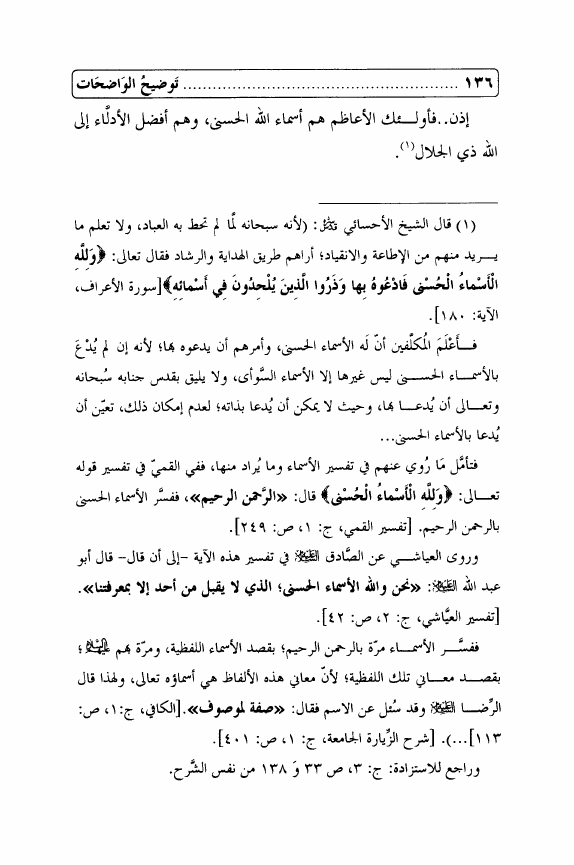 ١٣٦ ................................................. تَوضيحُ الوَاضحَات
إذن..فأولــئك الأعاظم هم أسماء الله الحسنى، وهم أفضل الأدلَّاء إلى
الله ذي الجلال(١).
(١) قال الشيخ الأحسائي قدس سره: (لأنه سبحانه لَّما لم تحط به العباد، ولا تعلم ما
يــريد منهم من الإطاعة والانقياد؛ أراهم طريق الهداية والرشاد فقال تعالى: ﴿وَلِلَّهِ
الْأَسْمَاءُ الْحُسْنَى فَادْعُوهُ بِها وَذَرُوا الَّذِينَ يُلْحِدُونَ فِي أَسْمائِهِ﴾[سورة الأعراف،
الآية: ١٨٠].
فــأَعْلَمَ الُمكلّفين أنّ لَه الأسماء الحسنى، وأمرهم أن يدعوه بها؛ لأنه إن لم يُدْعَ
بالأسمــاء الحســنى ليس غيرها إلا الأسماء السَّوأى، ولا يليق بقدس جنابه سُبحانه
وتعــالى أن يُدعــا بها، وحيث لا يمكن أن يُدعا بذاته؛ لعدم إمكان ذلك، تعيّن أن
يُدعا بالأسماء الحسنى...
فتأمَّل مَا رُوي عنهم في تفسير الأسماء وما يُراد منها، ففي القميّ في تفسير قوله
تعــالى: ﴿وَلِلَّهِ الْأَسْماءُ الْحُسْنى﴾ قال: «الرَّحمن الرحيم»، ففسَّر الأسماء الحسنى
بالرحمن الرحيم. [تفسير القمي، ج: ١، ص: ٢٤٩].
وروى العياشــي عن الصَّادق عليه السلام في تفسير هذه الآية -إلى أن قال- قال أبو
عبد الله عليه السلام: «نحن والله الأسماء الحسنى؛ الذي لا يقبل من أحد إلا بمعرفتنا».
[تفسير العيَّاشي، ج: ٢، ص: ٤٢].
ففسَّــر الأسمــاء مرّة بالرحمن الرحيم؛ بقصد الأسماء اللفظية، ومرّة بهم عليهم السلام؛
بقصــد معــاني تلك اللفظية؛ لأنّ معاني هذه الألفاظ هي أسماؤه تعالى، ولهذا قال
الرِّضــا عليه السلام وقد سُئل عن الاسم فقال: «صفة لموصوف».[الكافي، ج:١، ص:
١١٣]...). [شرح الزِّيارة الجامعة، ج: ١، ص: ٤٠١].
وراجع للاستزادة: ج: ٣، ص ٣٣ وَ ١٣٨ من نفس الشَّرح.